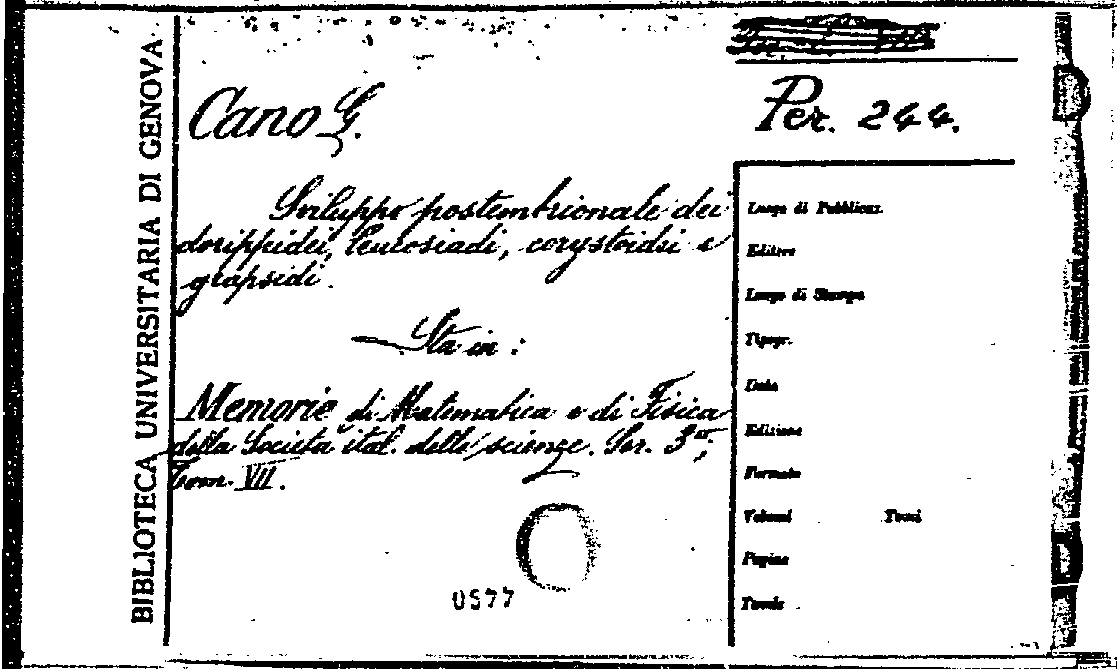 BIBLIOTECA UNIVERSITARIA DI GENOVA
Cano G.
Per. 244.
Sviluppo postembrionale dei
dorippidei, leucosiadi, corystoidei e
grapsidi.
Sta in :
Memorie di Matematica e di Fisica
della Società ital. delle scienze. Ser. 3ª,
Tom. VII.
0577
Luogo di Pubblicaz.
Editore
Luogo di Stampa
Tipogr.
Data
Edizione
Formato
Volumi Tomi
Pagine
Tavole